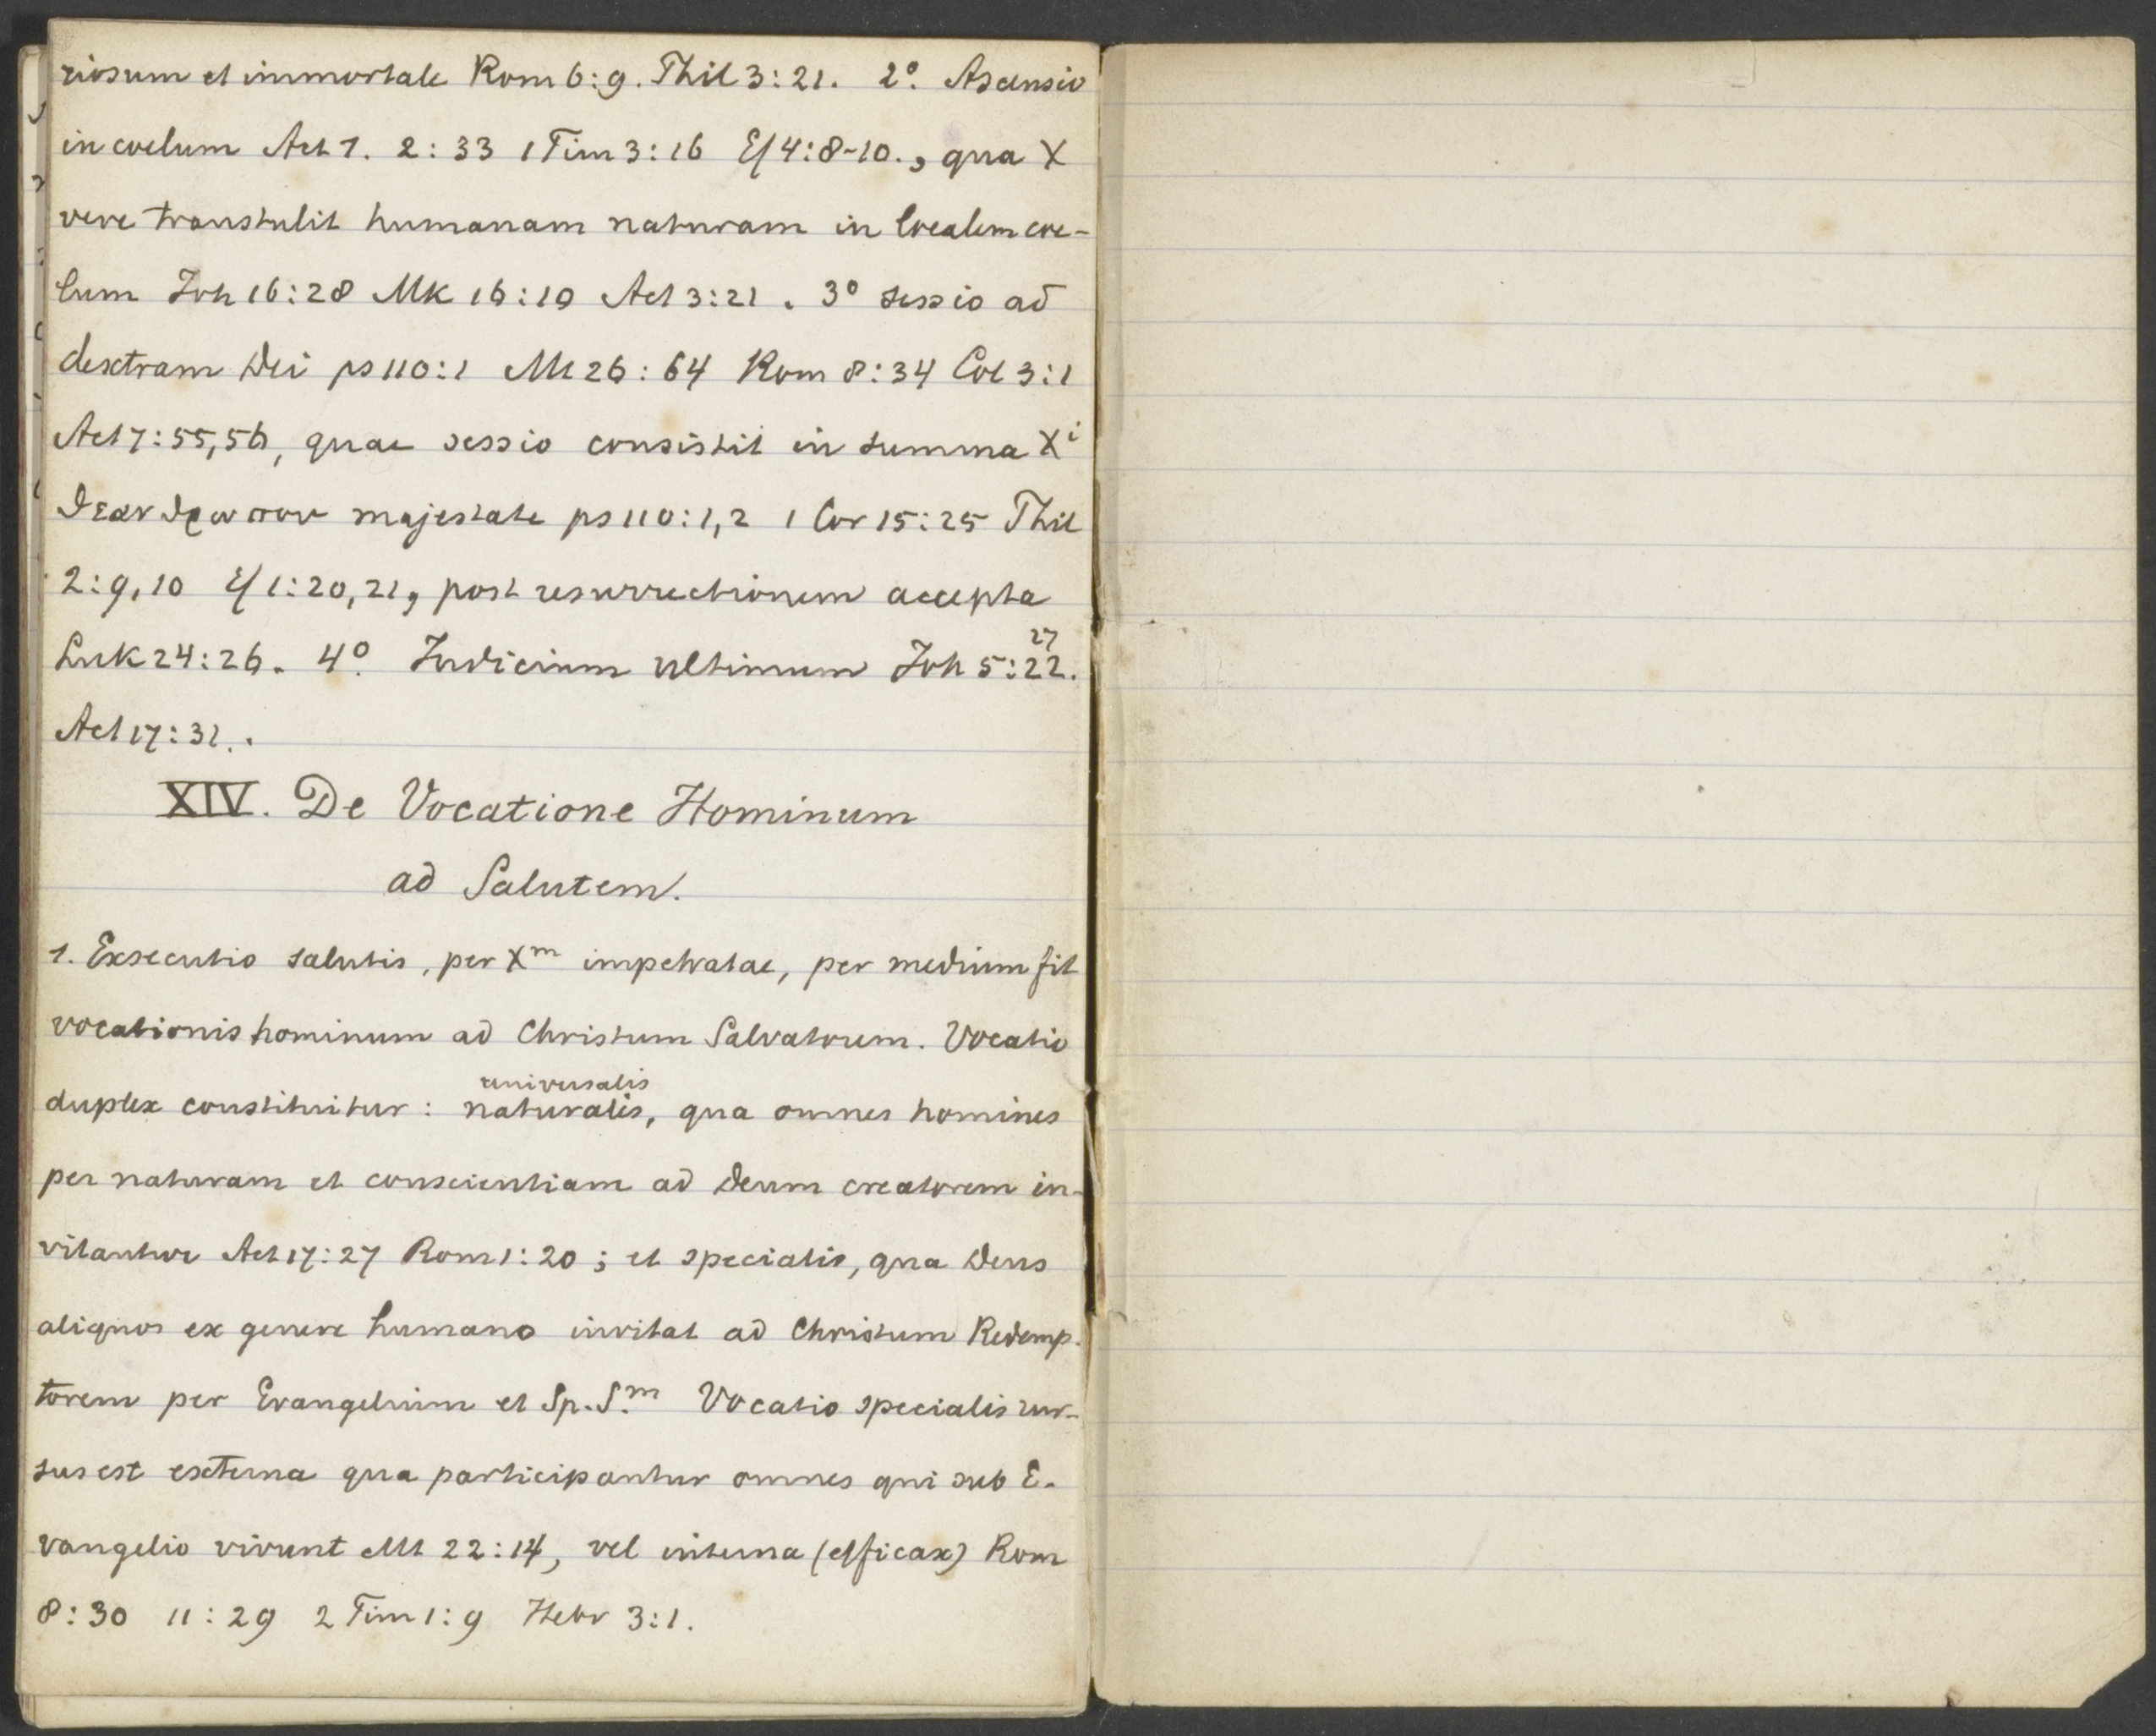 riosum et immortale Rom 6:9. Phil 3:21. 2° Ascensio
in coelum Act 1. 2:33 1 Tim 3:16 Ef 4:8-10., qua X
vere transtulit humanam naturam in localem coe-
lum Joh 16:28 Mk 16:19 Act 3:21. 3° sessio ad
dextram Dei ps 110:1 Mt 26:64 Rom 8:34 Col 3:1
Act 7:55,56, quae sessio consistit in summa Xi
θεανδρωπου majestate ps 110:1,2 1 Cor 15:25 Phil
2:9,10 Ef 1:20,21, post resurrectionem accepta
Luk 24:26. 4° Judicium ultimum Joh 5:22. 27
Act 17:31..
XIV. De Vocatione Hominum
ad Salutem.
1. Exsecutio salutis, per Xm impetratae, per medium fit
vocationis hominum ad Christum Salvatorem. Vocatio
universalis
duplex constituitur: naturalis, qua omnes homines
per naturam et conscientiam ad Deum creatorem in-
vitantur Act 17:27 Rom 1:20; et specialis, qua Deus
aliquos ex genere humano invitat ad Christum Redemp-
torem per Evangelium et Sp. S.m Vocatio specialis rur-
sus est externa qua participantur omnes qui sub E-
vangelio vivunt Mt 22:14, vel interna (efficax) Rom
8:30 11:29 2 Tim 1:9 Hebr 3:1.